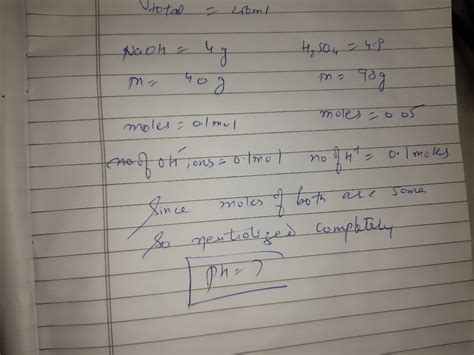 total = 200ml
NaOH = 4g H2SO4 = 4.9
m = 40g m = 98g
moles = 0.1mol moles = 0.05
no of OH- ions = 0.1mol no. of H+ = 0.1 moles
Since moles of both are same
So neutralized completely
pH = 7